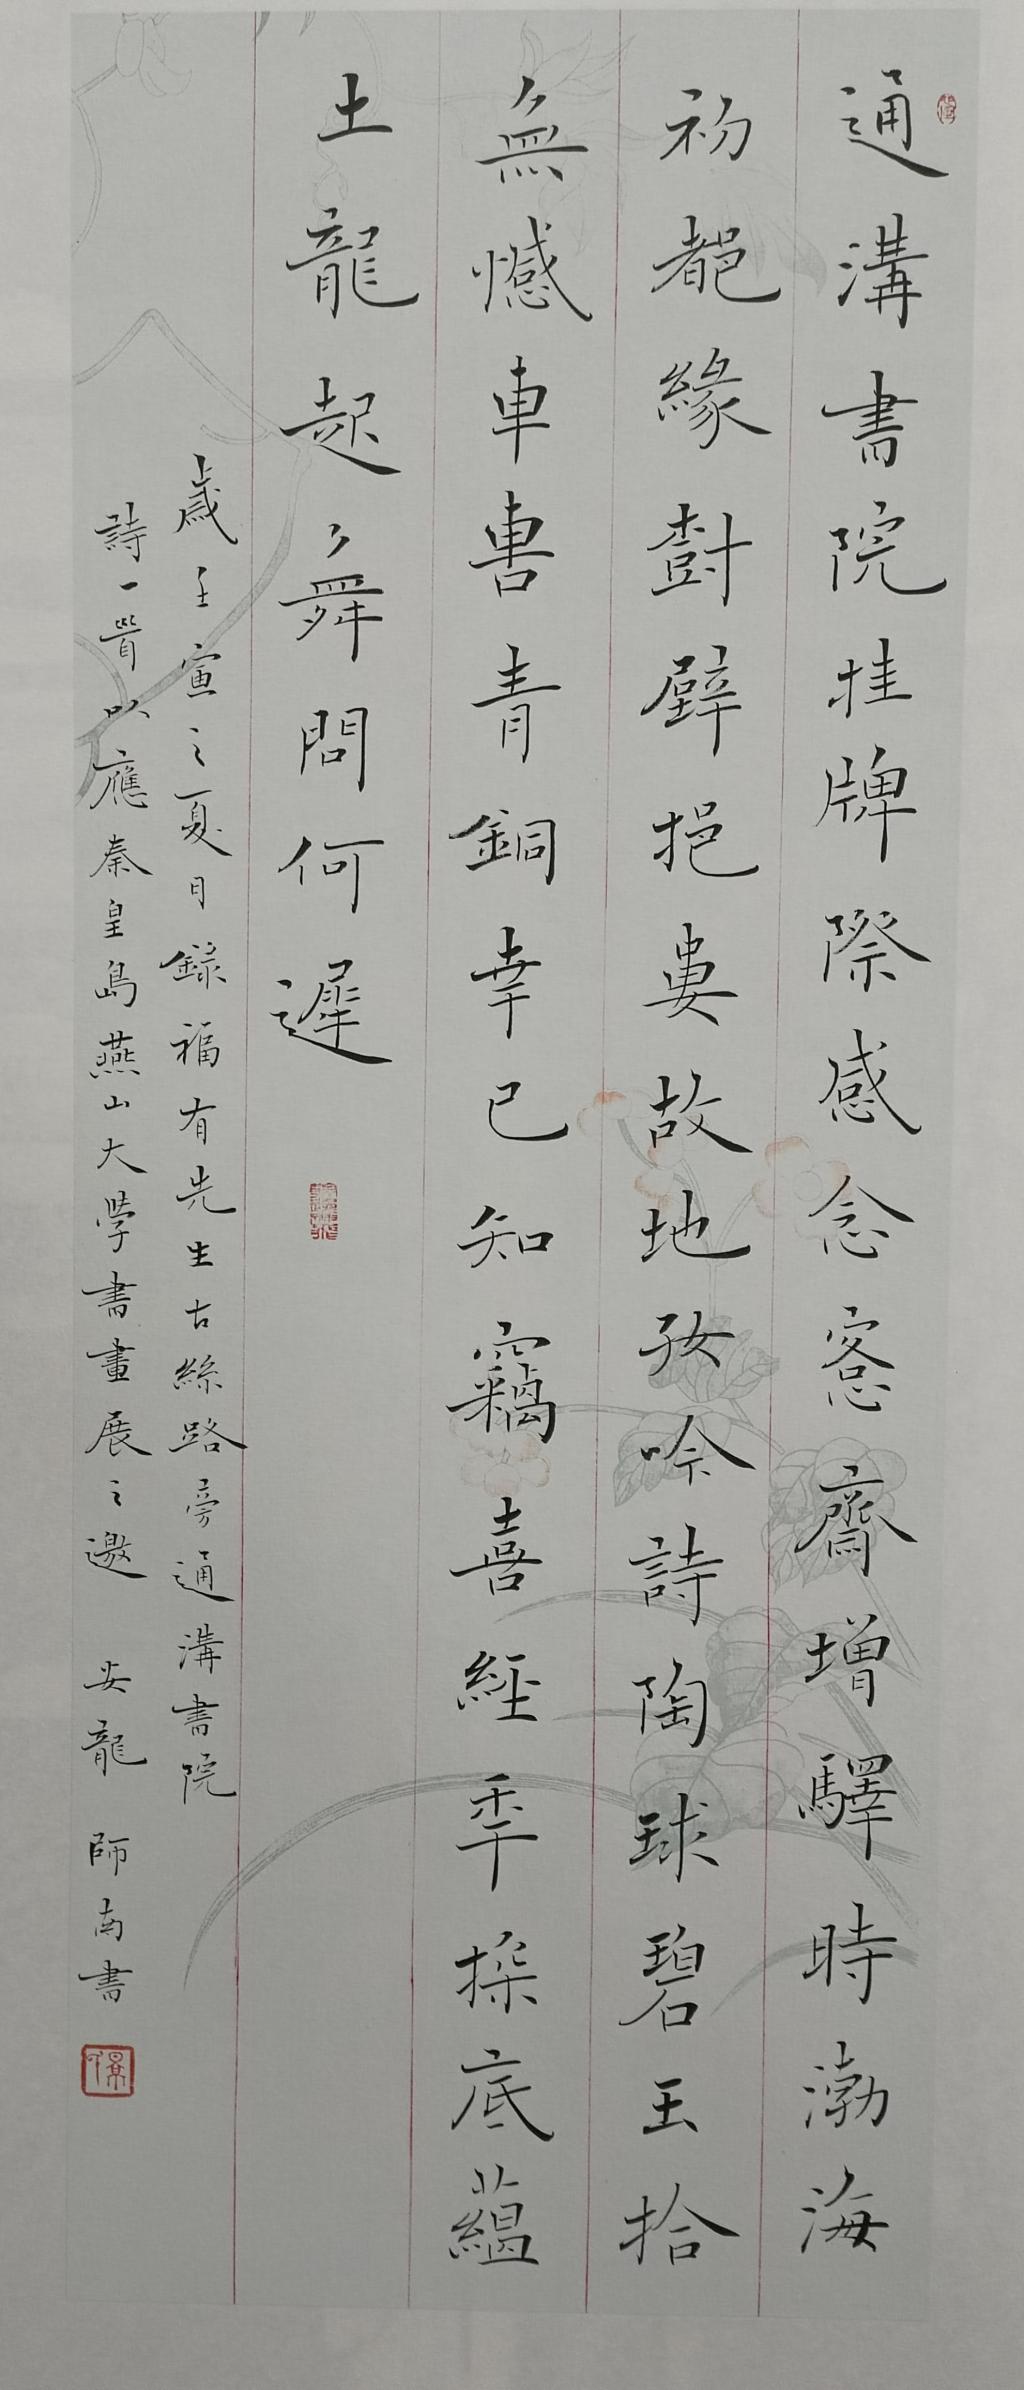 通溝書院挂牌際感念愙齋增驛時渤海
初郶緣對壁挹婁故地孜吟詩陶球碧玉拾
無憾車軎青銅幸已知竊喜經秊探底蘊
土龍起舞問何遲
歲壬寅之夏日錄福有先生古絲路旁通溝書院
詩一首以應秦皇島燕山大學書畫展之邀 安龍 師南書